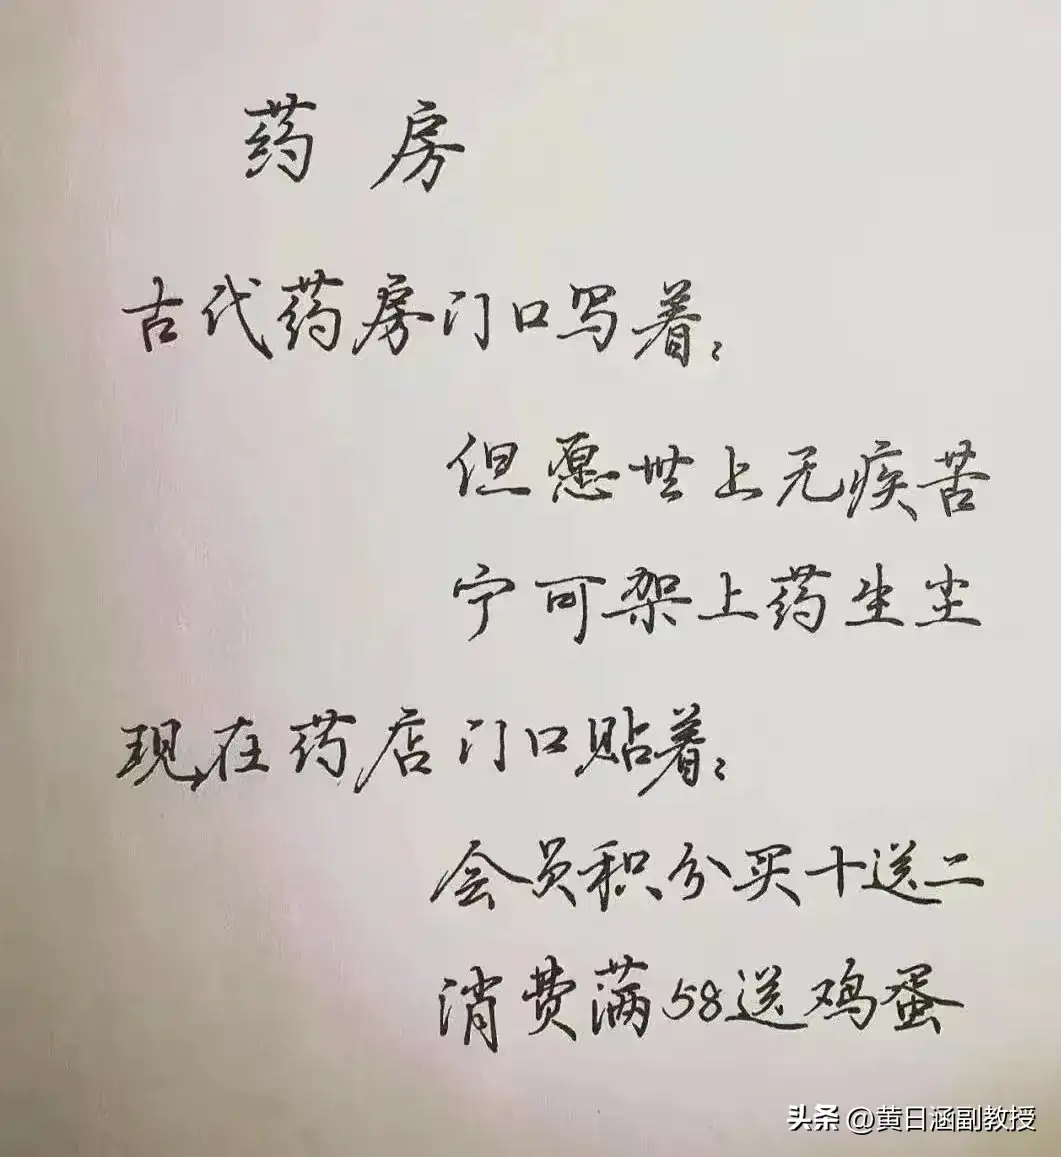 药房
古代药房门口写着：
但愿世上无疾苦
宁可架上药生尘
现在药店门口贴着：
会员积分买十送二
消费满58送鸡蛋
头条 @黄日涵副教授